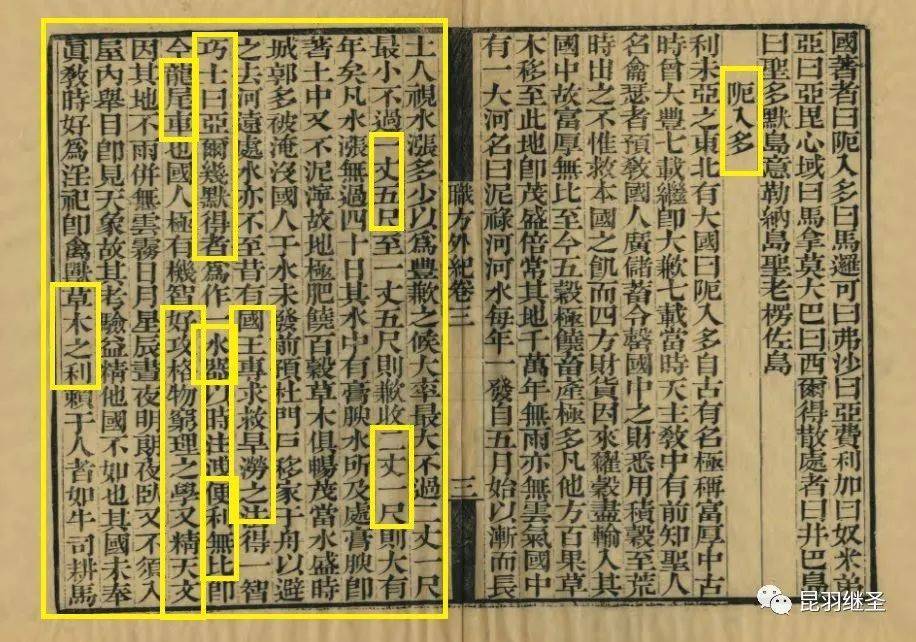 國著者曰阨入多曰馬邏可曰弗沙曰亞費利加曰奴米弟
亞曰亞毘心域曰馬拿莫大巴曰西爾得散處者曰井巴島
曰聖多默島意勒納島聖老楞佐島
阨入多
利未亞之東北有大國曰阨入多自古有名極稱富厚中古
時曾大豐七載繼卽大歉七載當時天主敎中有前知聖人
名龠瑟者預敎國人廣儲蓄令罄國中之財悉用積穀至荒
時出之不惟救本國之飢而四方財貨因來糴穀盡輸入其
國中故富厚無比至今五穀極饒畜產極多凡他方百果草
木移至此地卽茂盛倍常其地千萬年無雨亦無雲氣國中
有一大河名曰泥祿河河水每年一發自五月始以漸而長
職方外紀卷三 三
土人視水漲多少以爲豐歉之候大率最大不過二丈一尺
最小不過一丈五尺至一丈五尺則歉收二丈一尺則大有
年矣凡水漲無過四十日其水中有膏腴水所及處膏腴卽
著土中又不泥濘故地極肥饒百穀草木俱暢茂當水盛時
城郭多被淹沒國人于水未發前預杜門戶移家于舟以避
之去河遠處水亦不至昔有國王專求救旱澇之法得一智
巧士曰亞爾幾默得者爲作一水器以時注洩便利無比卽
今龍尾車也國人極有機智好攻格物窮理之學又精天文
因其地不雨併無雲霧日月星辰晝夜明朗夜臥又不須入
屋內舉目卽見天象故其考驗益精他國不如也其國未奉
眞敎時好爲淫祀卽禽獸草木之利賴于人者如牛司耕馬
昆羽继圣